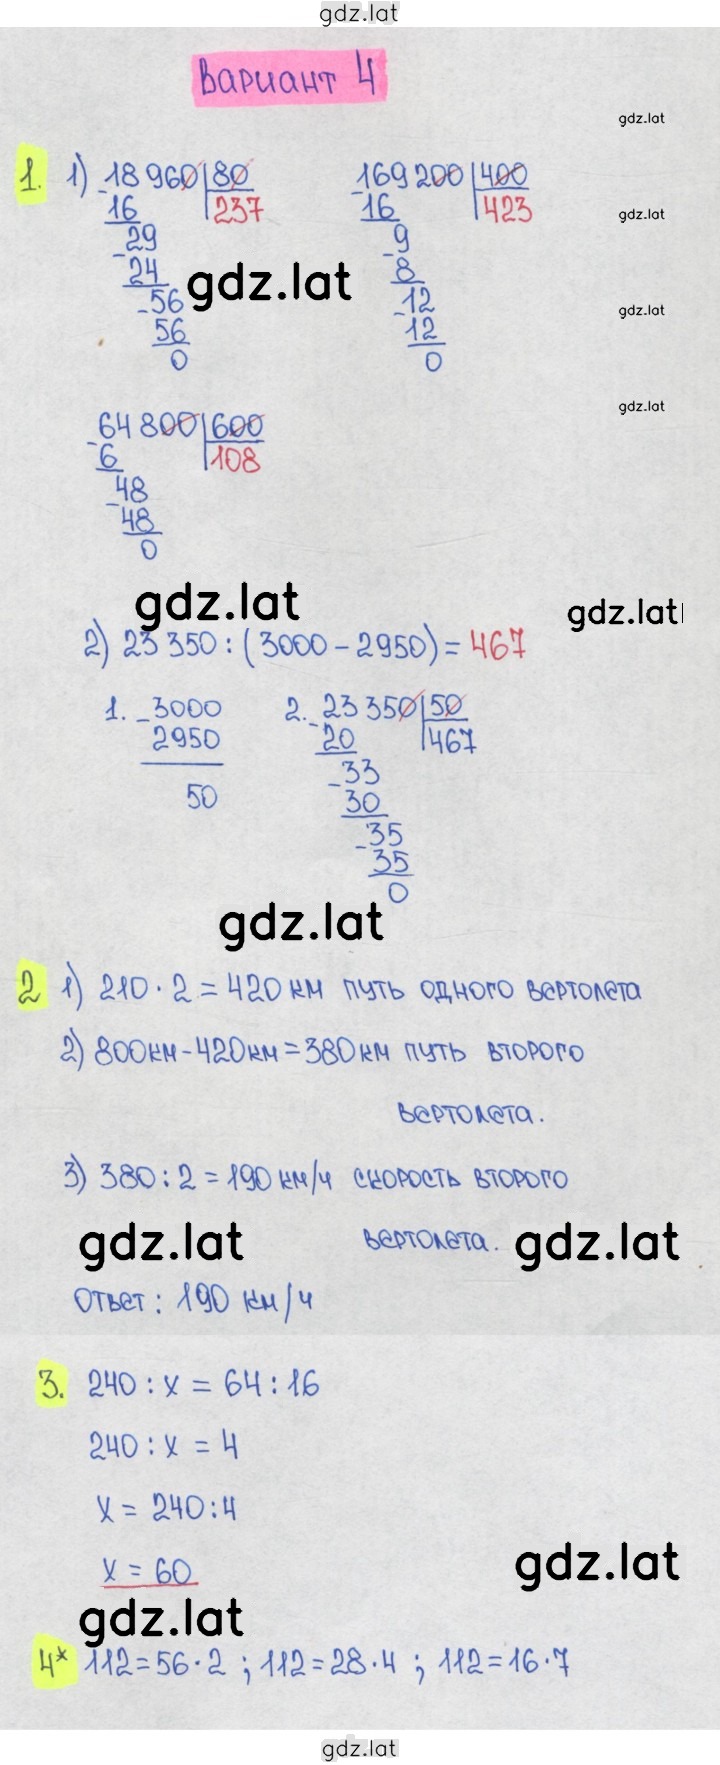 gdz.lat
Вариант 4
gdz.lat
1. 1) 18 960 | 80   169 200 | 400
- 16 | 237   - 16 | 423
gdz.lat
29   9
- 24   - 8
gdz.lat
56   12
gdz.lat
- 56   - 12
0   0
gdz.lat
64 800 | 600
- 6 | 108
48
- 48
0
gdz.lat gdz.lat
2) 23 350 : (3000 - 2950) = 467
1. - 3000   2. 23 350 | 50
2950   - 20 | 467
50   33
- 30
35
- 35
0
gdz.lat
2 1) 210 · 2 = 420 км путь одного вертолета
2) 800км - 420км = 380км путь второго
вертолета.
3) 380 : 2 = 190 км/ч скорость второго
вертолета.
gdz.lat gdz.lat
Ответ: 190 км/ч
3. 240 : x = 64 : 16
240 : x = 4
x = 240:4
x = 60
gdz.lat
gdz.lat
4* 112 = 56 · 2 ; 112 = 28 · 4 ; 112 = 16 · 7
gdz.lat